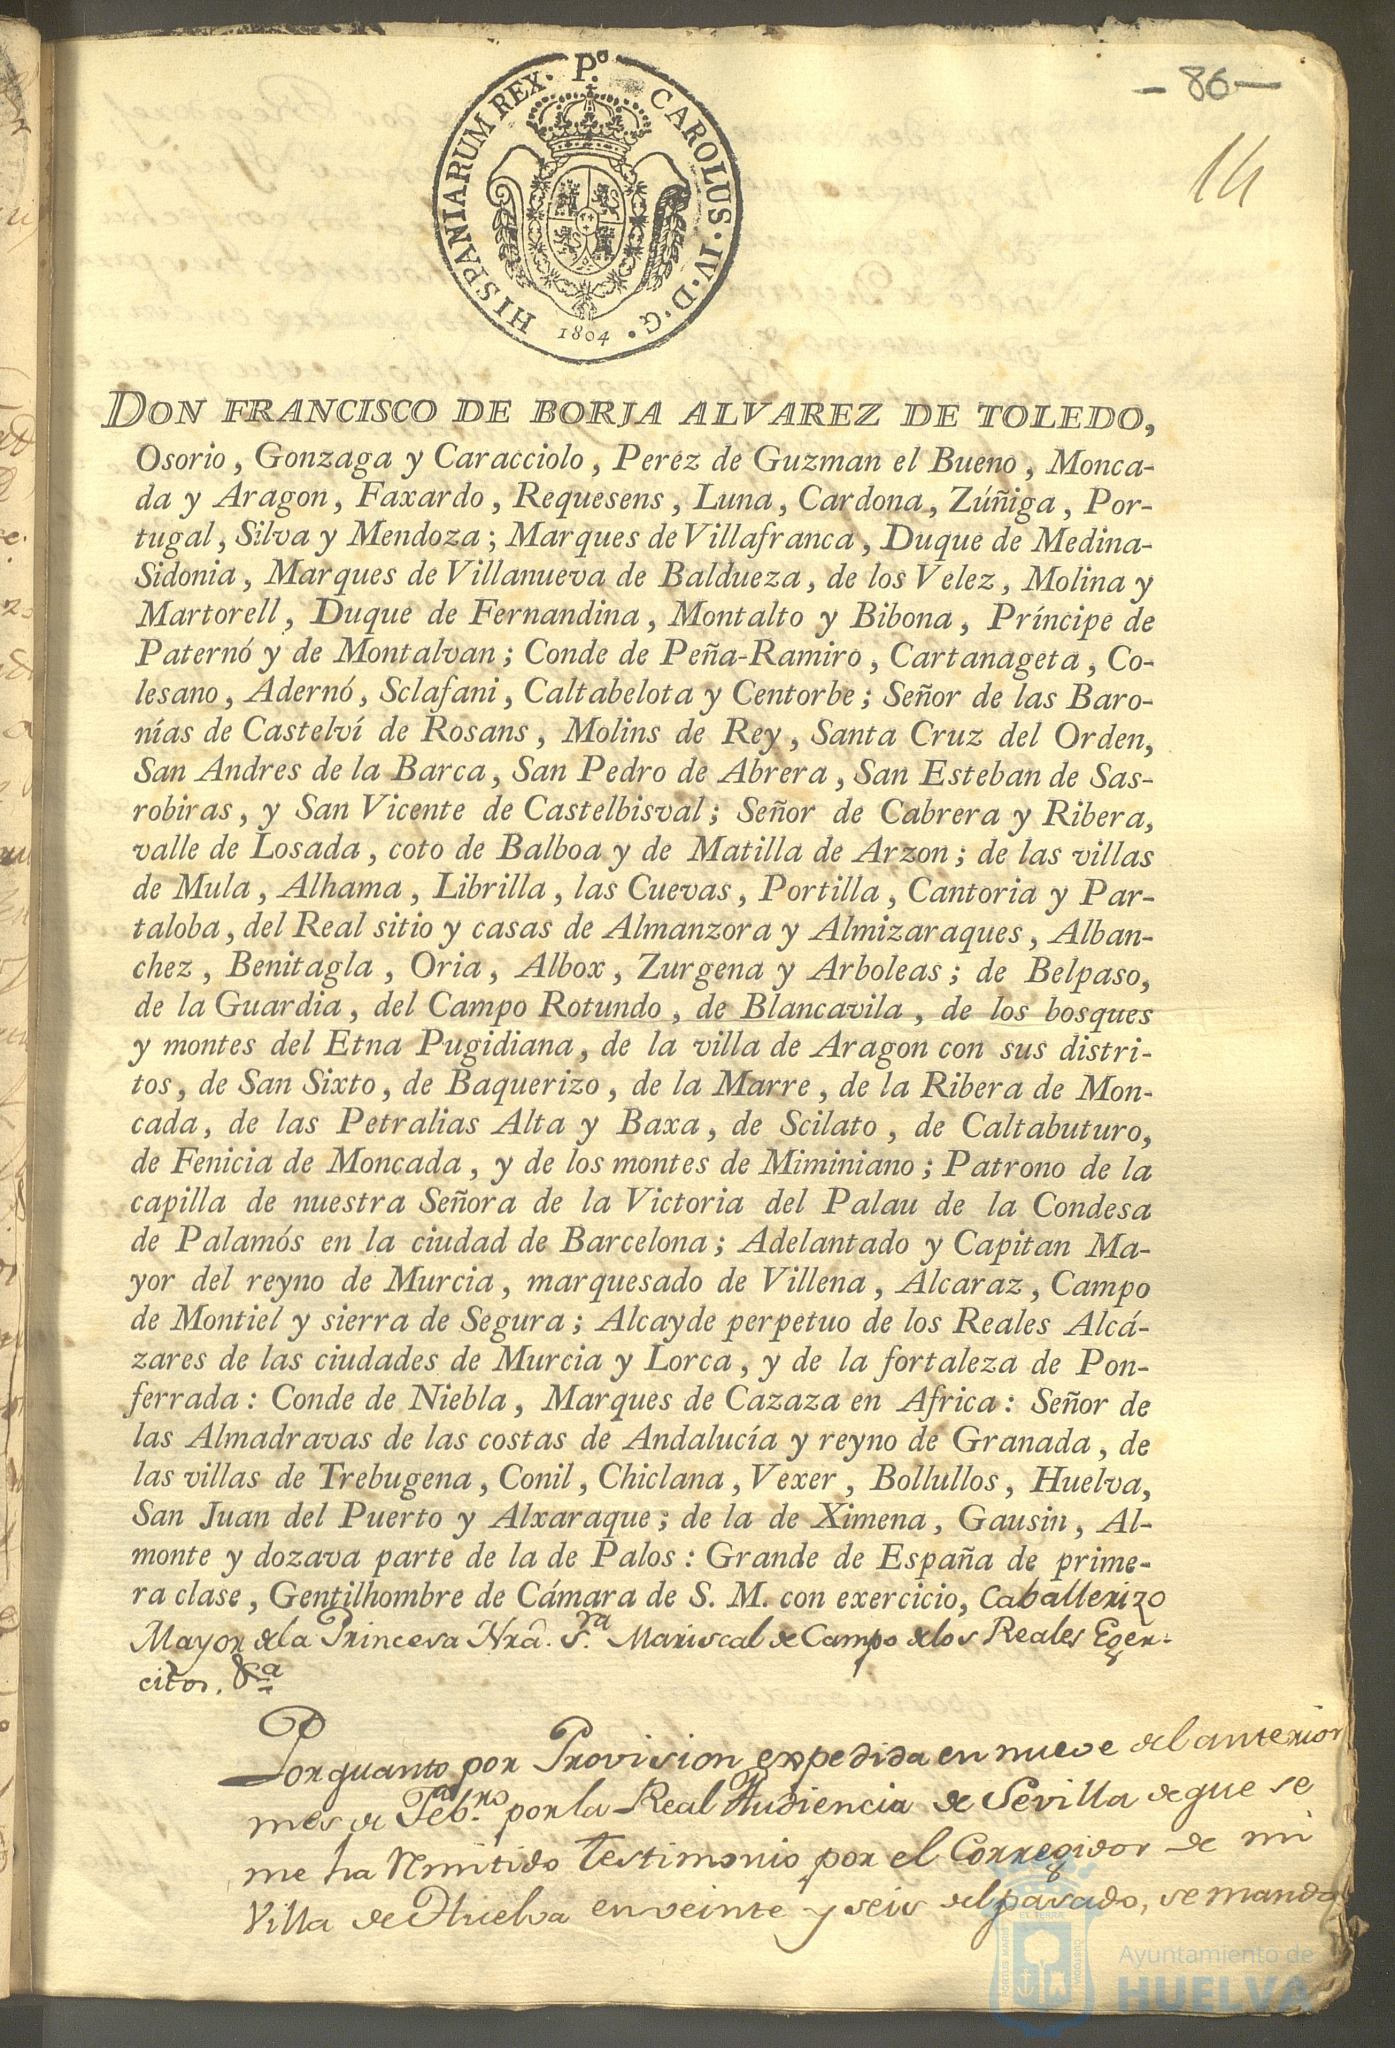 - 86 -
14
HISPANIARUM REX. P.º CAROLUS. IV. D. G.
1804
DON FRANCISCO DE BORJA ALVAREZ DE TOLEDO,
Osorio, Gonzaga y Caracciolo, Perez de Guzman el Bueno, Monca-
da y Aragon, Faxardo, Requesens, Luna, Cardona, Zúñiga, Por-
tugal, Silva y Mendoza; Marques de Villafranca, Duque de Medina-
Sidonia, Marques de Villanueva de Baldueza, de los Velez, Molina y
Martorell, Duque de Fernandina, Montalto y Bibona, Príncipe de
Paternó y de Montalvan; Conde de Peña-Ramiro, Cartanageta, Co-
lesano, Adernó, Sclafani, Caltabelota y Centorbe; Señor de las Baro-
nías de Castelví de Rosans, Molins de Rey, Santa Cruz del Orden,
San Andres de la Barca, San Pedro de Abrera, San Esteban de Sas-
robiras, y San Vicente de Castelbisval; Señor de Cabrera y Ribera,
valle de Losada, coto de Balboa y de Matilla de Arzon; de las villas
de Mula, Alhama, Librilla, las Cuevas, Portilla, Cantoria y Par-
taloba, del Real sitio y casas de Almanzora y Almizaraques, Alban-
chez, Benitagla, Oria, Albox, Zurgena y Arboleas; de Belpaso,
de la Guardia, del Campo Rotundo, de Blancavila, de los bosques
y montes del Etna Pugidiana, de la villa de Aragon con sus distri-
tos, de San Sixto, de Baquerizo, de la Marre, de la Ribera de Mon-
cada, de las Petralias Alta y Baxa, de Scilato, de Caltabuturo,
de Fenicia de Moncada, y de los montes de Miminiano; Patrono de la
capilla de nuestra Señora de la Victoria del Palau de la Condesa
de Palamós en la ciudad de Barcelona; Adelantado y Capitan Ma-
yor del reyno de Murcia, marquesado de Villena, Alcaraz, Campo
de Montiel y sierra de Segura; Alcayde perpetuo de los Reales Alcá-
zares de las ciudades de Murcia y Lorca, y de la fortaleza de Pon-
ferrada: Conde de Niebla, Marques de Cazaza en Africa: Señor de
las Almadravas de las costas de Andalucía y reyno de Granada, de
las villas de Trebugena, Conil, Chiclana, Vexer, Bollullos, Huelva,
San Juan del Puerto y Alxaraque; de la de Ximena, Gausin, Al-
monte y dozava parte de la de Palos: Grande de España de prime-
ra clase, Gentilhombre de Cámara de S. M. con exercicio, Caballerizo
Mayor de la Princesa Nrâ. S.ra Mariscal de Campo de los Reales Egér-
citos. &a
Por quanto por Provision expedida en nueve del anterior
mes de Feb.ro por la Real Audiencia de Sevilla de que se
me ha rmitido Testimonio por el Corregidor de mi
Villa de Huelva en veinte y seis del pasado, se manda
Ayuntamiento de
HUELVA